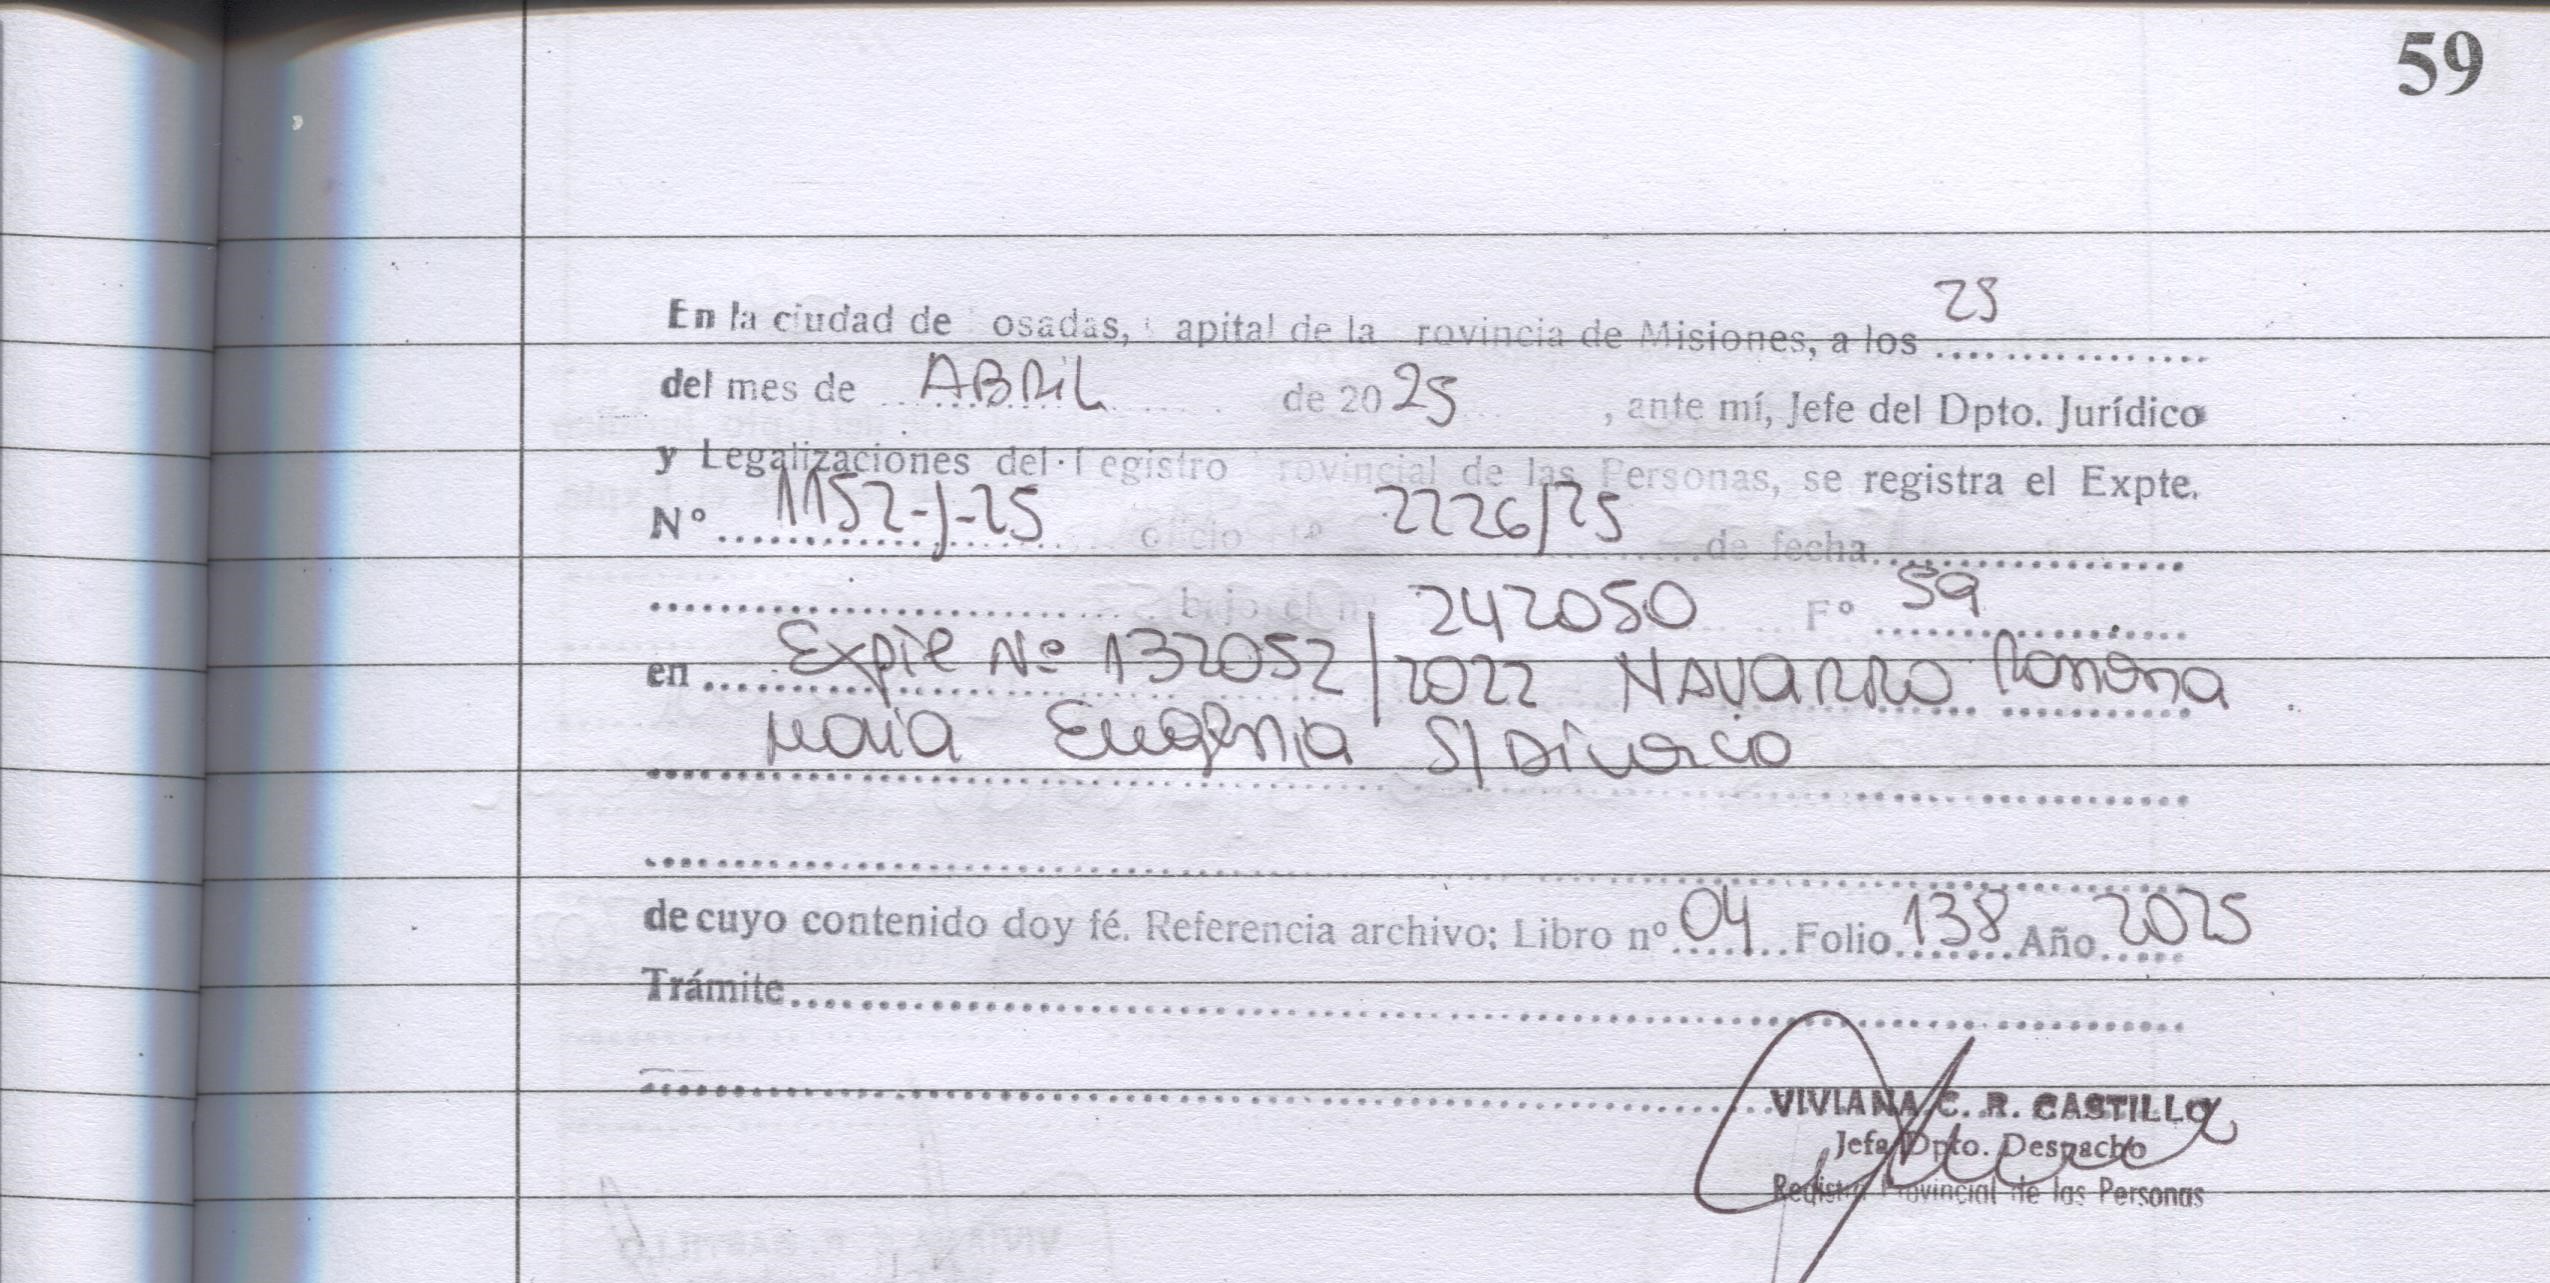 59
En la ciudad de osadas, apital de la rovincia de Misiones, a los 25
del mes de ABRIL de 2025, ante mí, Jefe del Dpto. Jurídico
y Legalizaciones del egistro rovincial de las Personas, se registra el Expte.
N° 1152-J-25 oficio n° 2226/25 de fecha
bajo el n° 242050 F° 59
en Expte Nº 132052/2022 NAVARRO Romina
Maria Eugenia S/Divorcio
de cuyo contenido doy fé. Referencia archivo: Libro nº 04 Folio 138 Año 2025
Trámite
VIVIANA C. R. CASTILLO
Jefa Dpto. Despacho
Registro Provincial de las Personas